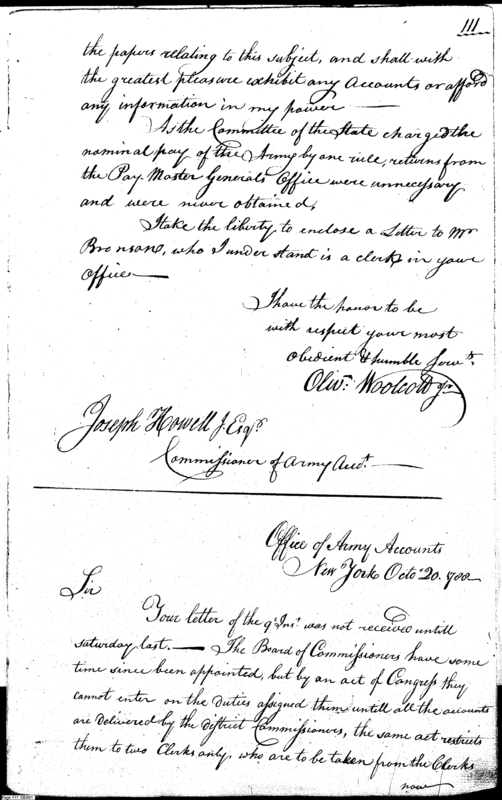 111
the papers relating to this subject, and shall with
the greatest pleasure exhibit any Accounts or afford
any information in my power —
As the Committee of the State charged the
nominal pay of the Army by one rule, returns from
the Pay Master Generals Office were unnecessary
and were never obtained,
I take the liberty to enclose a Letter to Mr
Bronson, who I understand is a clerk in your
Office —
I have the honor to be
with respect your most
obedient & humble Servt.
Olivr. Wolcott Jr
Joseph Howell J. Esqr.
Commissioner of Army Acct. —
Office of Army Accounts
New York Octo. 20. 1788
Sir
Your letter of the 9 Inst. was not received untill
saturday last. — The Board of Commissioners have some
time since been appointed, but by an act of Congress they
cannot enter on the duties assigned them untill all the accounts
are delivered by the district Commissioners, the same act restricts
them to two Clerks only, who are to be taken from the Clerks
now